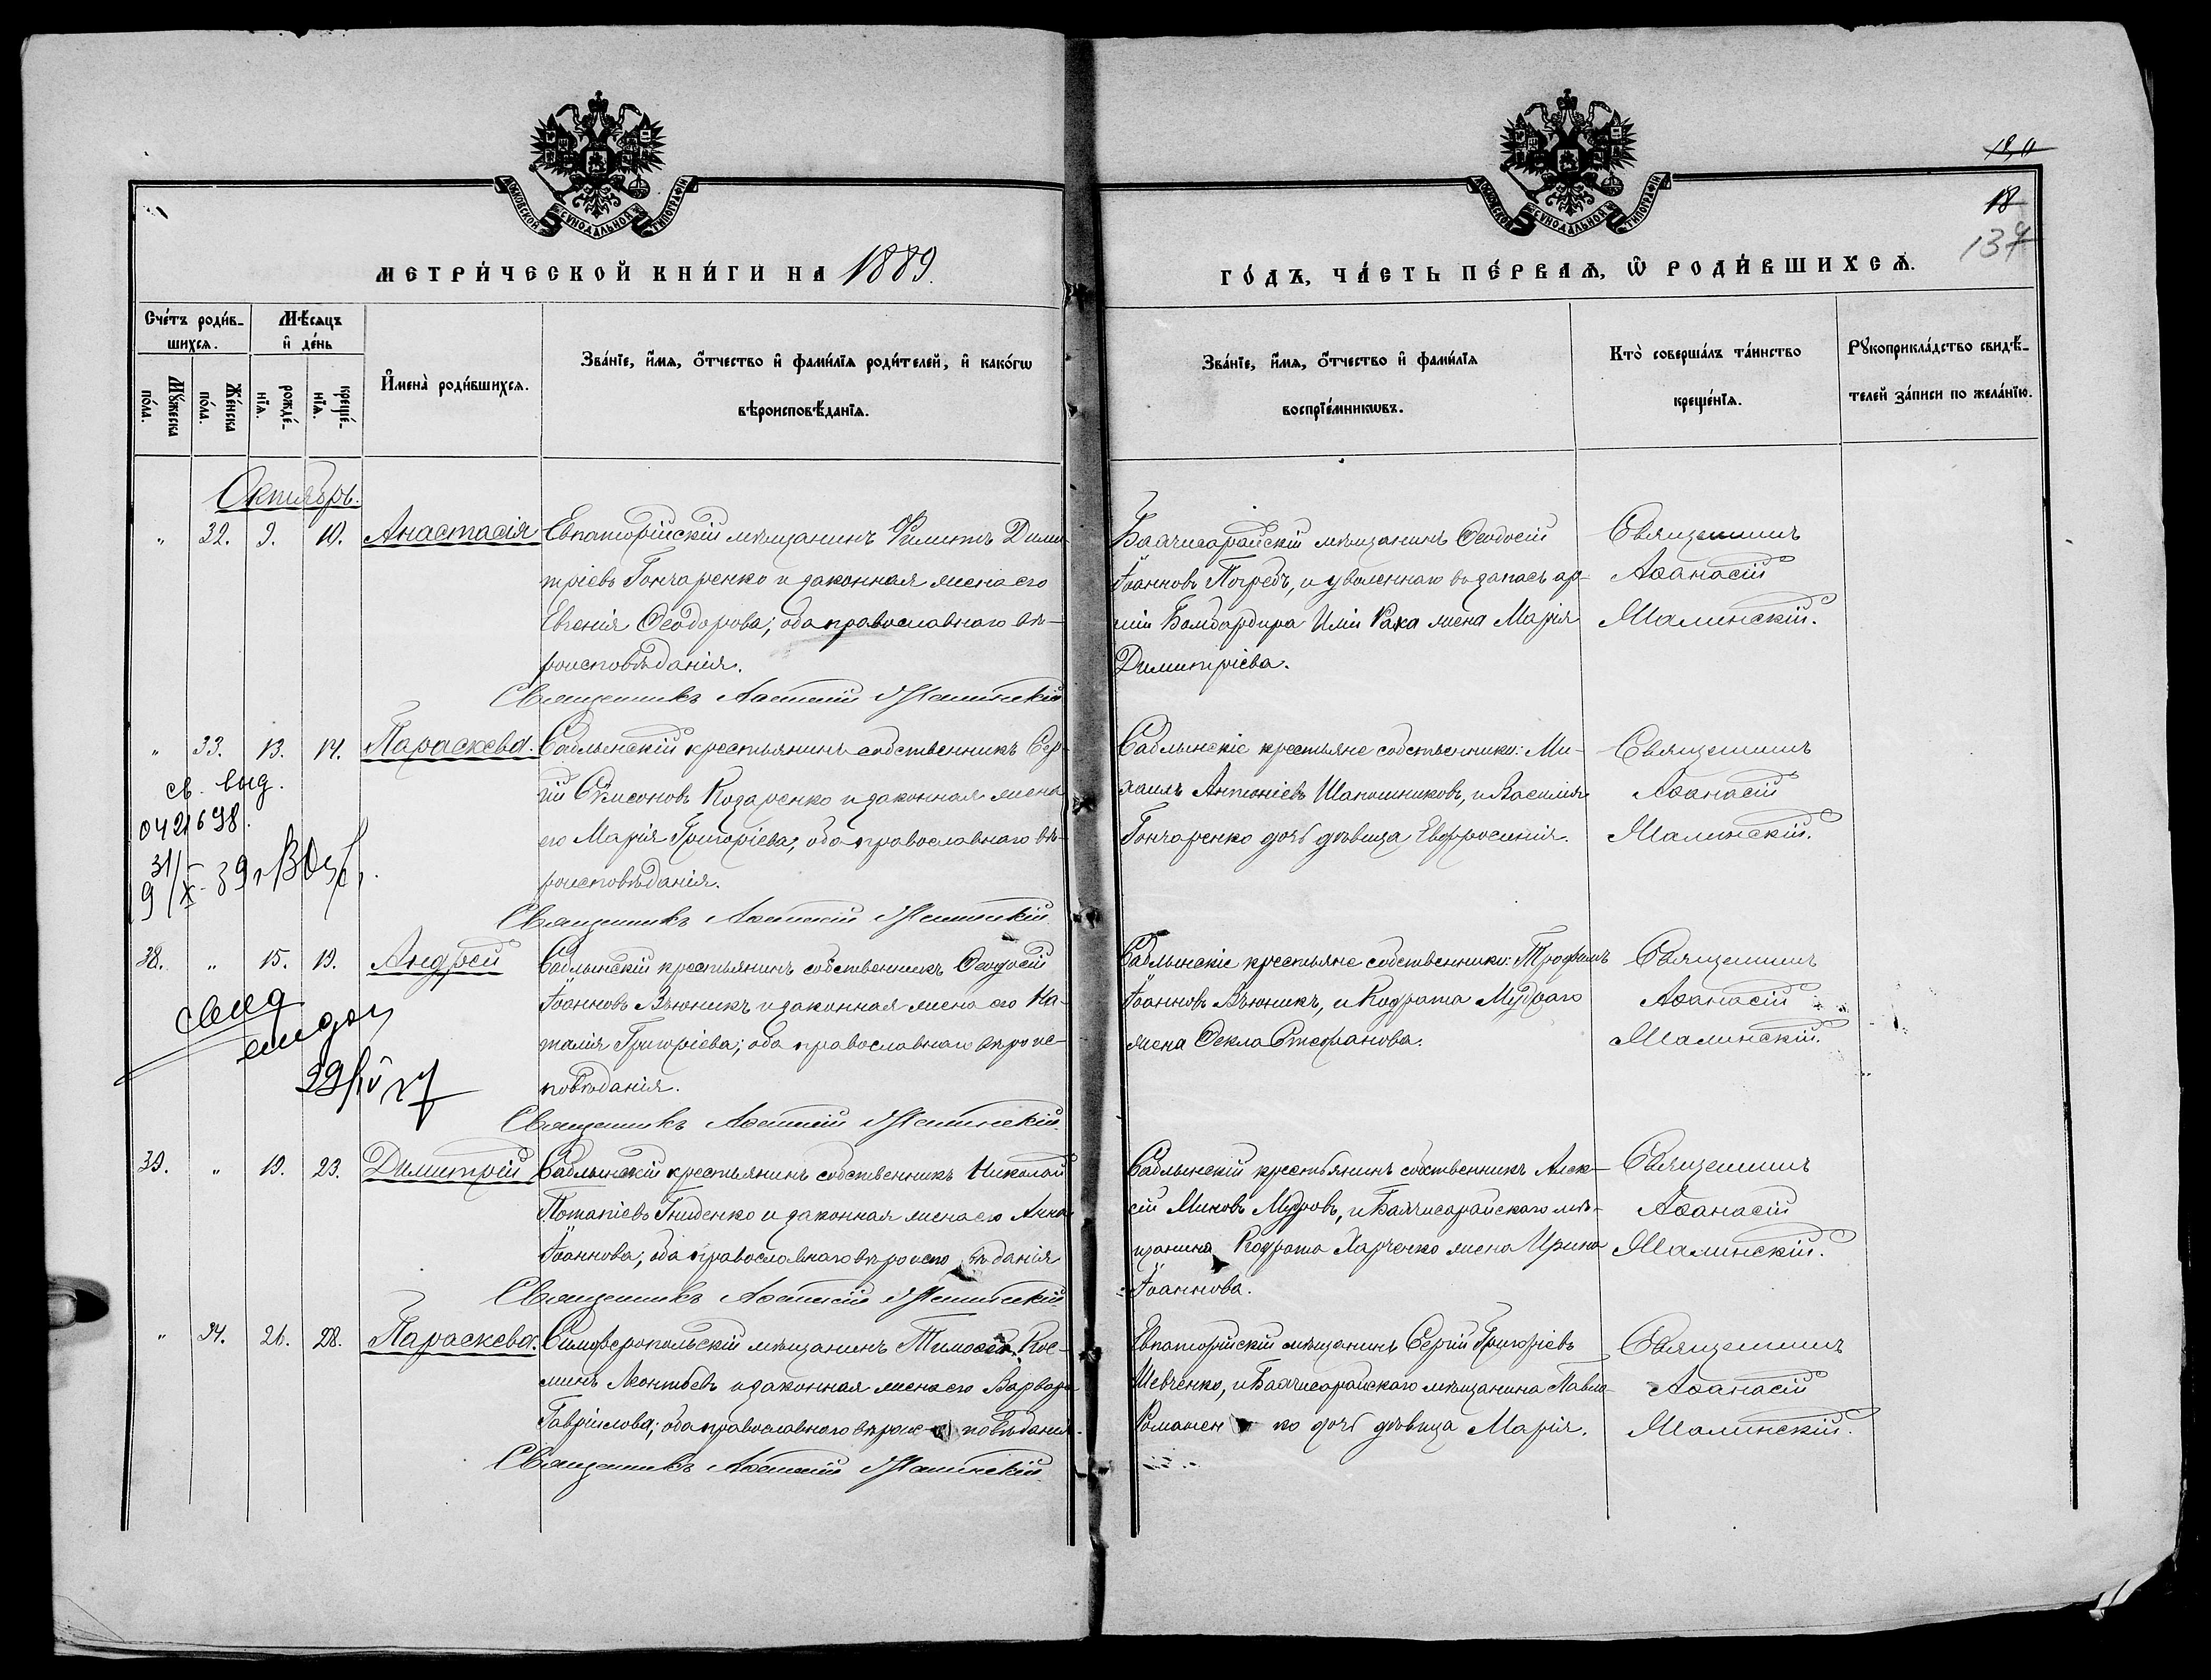 18,0
18
137
МОСКОВСКОЙ СѴНОДАЛЬНОЙ ТИПОГРАФІИ
МОСКОВСКОЙ СѴНОДАЛЬНОЙ ТИПОГРАФІИ
МЕТРИ́ЧЕСКОЙ КНИ́ГИ НА 1889.
ГО́ДЪ, ЧА́СТЬ ПЕ́РВАѦ, Ѽ РОДИ́ВШИХСѦ.
Сче́тъ роди́в-
шихсѧ.
Мꙋжеска по́ла.
Же́нска по́ла.
Мѣ́сѧцъ
и҆ де́нь
рожде́-
нїѧ.
креще́-
нїѧ.
И҆мена̀ роди́вшихсѧ.
Зва́нїе, и҆́мѧ, ѻ҆́тчество и҆ фами́лїѧ роди́телей, и҆ како́гѡ
вѣроисповѣ́данїѧ.
Зва́нїе, и҆́мѧ, ѻ҆́тчество и҆ фами́лїѧ
воспрїе́мникѡвъ.
Кто̀ соверша́лъ та́инство
креще́нїѧ.
Рꙋкоприкла́дство свидѣ́-
телей за́писи по жела́нїю.
Октябрь.
" 32. 9. 10. Анастасія
Евпаторійскій мѣщанинъ Филиппъ Дими-
тріевъ Гончаренко и законная жена его
Евгенія Ѳеодорова; оба православнаго вѣ-
роисповѣданія.
Священникъ Аѳанасій Малинскій
Бахчисарайскій мѣщанинъ Ѳеодосій
Іоанновъ Погребъ, и уволеннаго въ запасъ ар-
міи Бомбардира Иліи Рака жена Марія
Димитріева.
Священникъ
Аѳанасій
Малинскій.
" 33. 13. 14. Параскева.
Саблынскій крестьянинъ собственникъ Сер-
гій Сѵмеоновъ Козаренко и законная жена
его Марія Григоріева; оба православнаго вѣ-
роисповѣданія.
Священникъ Аѳанасій Малинскій
Саблынскіе крестьяне собственники: Ми-
хаилъ Антоніевъ Шапошниковъ, и Василія
Гончаренко дочь дѣвица Евфросинія.
Священникъ
Аѳанасій
Малинскій.
св. выд.
0421698.
31/-
9/X-39г
38. " 15. 19. Андрей
Саблынскій крестьянинъ собственникъ Ѳеодосій
Іоанновъ Вьюникъ и законная жена его На-
талія Григоріева; оба православнаго вѣроис-
повѣданія.
Священникъ Аѳанасій Малинскій
Саблынскіе крестьяне собственники: Трофимъ
Іоанновъ Вьюникъ, и Кодрата Мудраго
жена Ѳекла Стефанова.
Священникъ
Аѳанасій
Малинскій.
свид
39. " 19. 23. Димитрій
Саблынскій крестьянинъ собственникъ Николай
Потапіевъ Гниденко и законная жена его Анна
Іоаннова; оба православнаго вѣроисповѣданія
Священникъ Аѳанасій Малинскій
Саблынскій крестьянинъ собственникъ Алек-
сій Миновъ Мудровъ, и Бахчисарайскаго мѣ-
щанина Кодрата Харченко жена Ирина
Іоаннова.
Священникъ
Аѳанасій
Малинскій.
" 34. 26. 28. Параскева.
Симферопольскій мѣщанинъ Тимоѳей Кос-
минъ Леонтьевъ и законная жена его Варвара
Гавріилова; оба православнаго вѣроисповѣданія.
Священникъ Аѳанасій Малинскій
Евпаторійскій мѣщанинъ Сергій Григоріевъ
Шевченко, и Бахчисарайскаго мѣщанина Павла
Романенко дочь дѣвица Марія.
Священникъ
Аѳанасій
Малинскій.